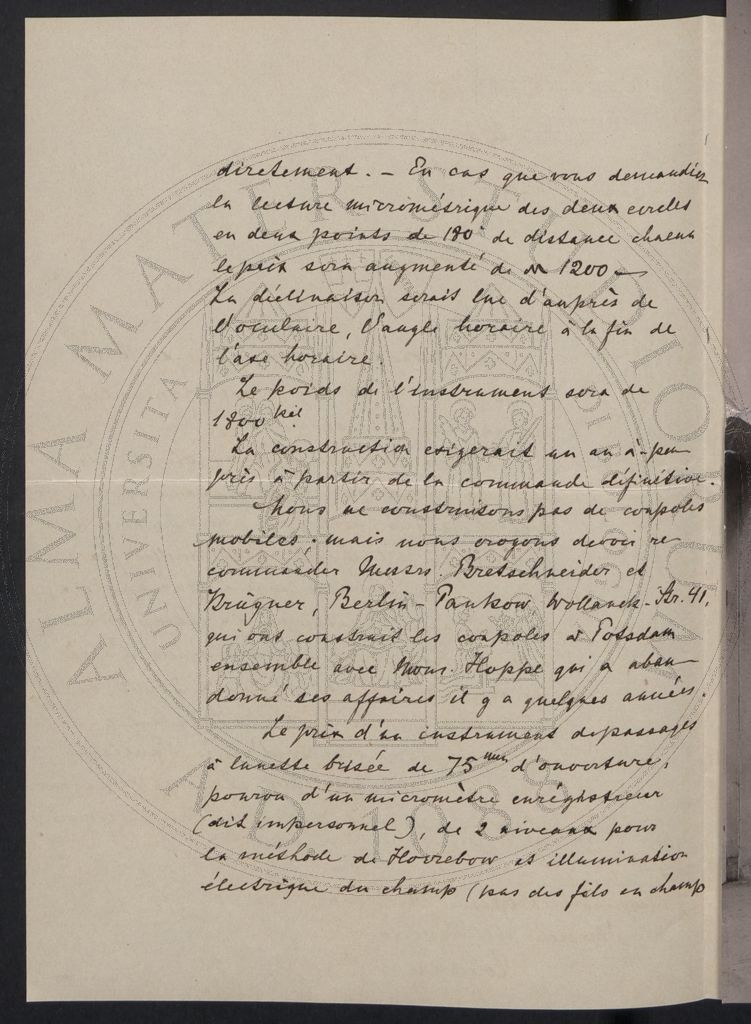 diretement. – En cas que vous demandiez
la lecture micrométrique des deux cercles
en deux points de 180° de distance chacun
le prix sera augmenté de M 1200 –
La déclinaison serait lue d'auprès de
l'oculaire, l'angle horaire à la fin de
l'axe horaire.
Le poids de l'instrument sera de
1800 kil
La construction exigerait un an à-peu
près à partir de la commande définitive.
Nous ne construisons pas de coupoles
mobiles. mais nous croyons devoir re
commander Messrs. Bretschneider et
Krügner, Berlin-Pankow, Wollanck-Str. 41,
qui ont construit les coupoles à Potsdam
ensemble avec Mons. Hoppe qui a aban-
donné ses affaires il y a quelques années.
Le prix d'un instrument de passages
à lunette brisée de 75 mm d'ouverture,
pourvu d'un micromètre enrégistreur
(dit impersonnel), de 2 niveaux pour
la méthode de Horrebow et illumination
électrique du champ (pas des fils en champ
ALMA MATER STUDIORUM
UNIVERSITA
A.D. 1088